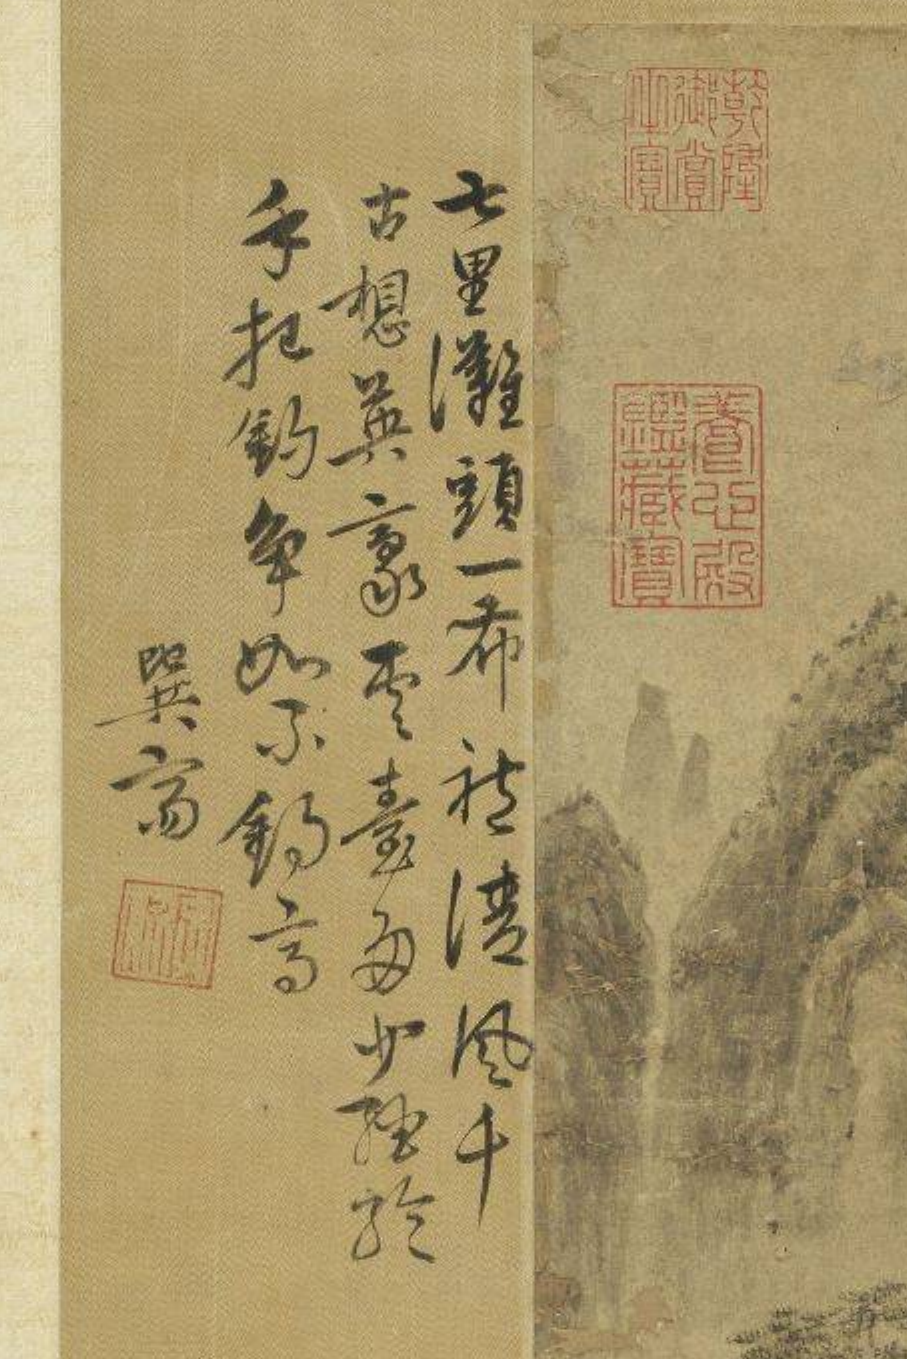 乾隆御賞之寶
養心殿鑑藏寶
七里灘頭一布袍清風千
古想英豪雲臺多少經綸
手把釣爭如不釣高
巽齋